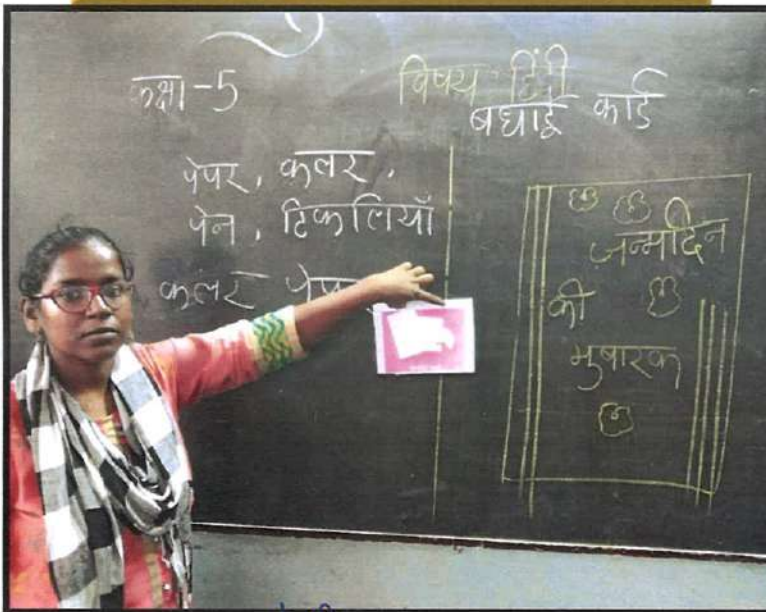 कक्षा-5
विषय हिंदी
बधाई कार्ड
पेपर, कलर,
पेन, टिकलियाँ
कलर
जन्मदिन
की
मुबारक